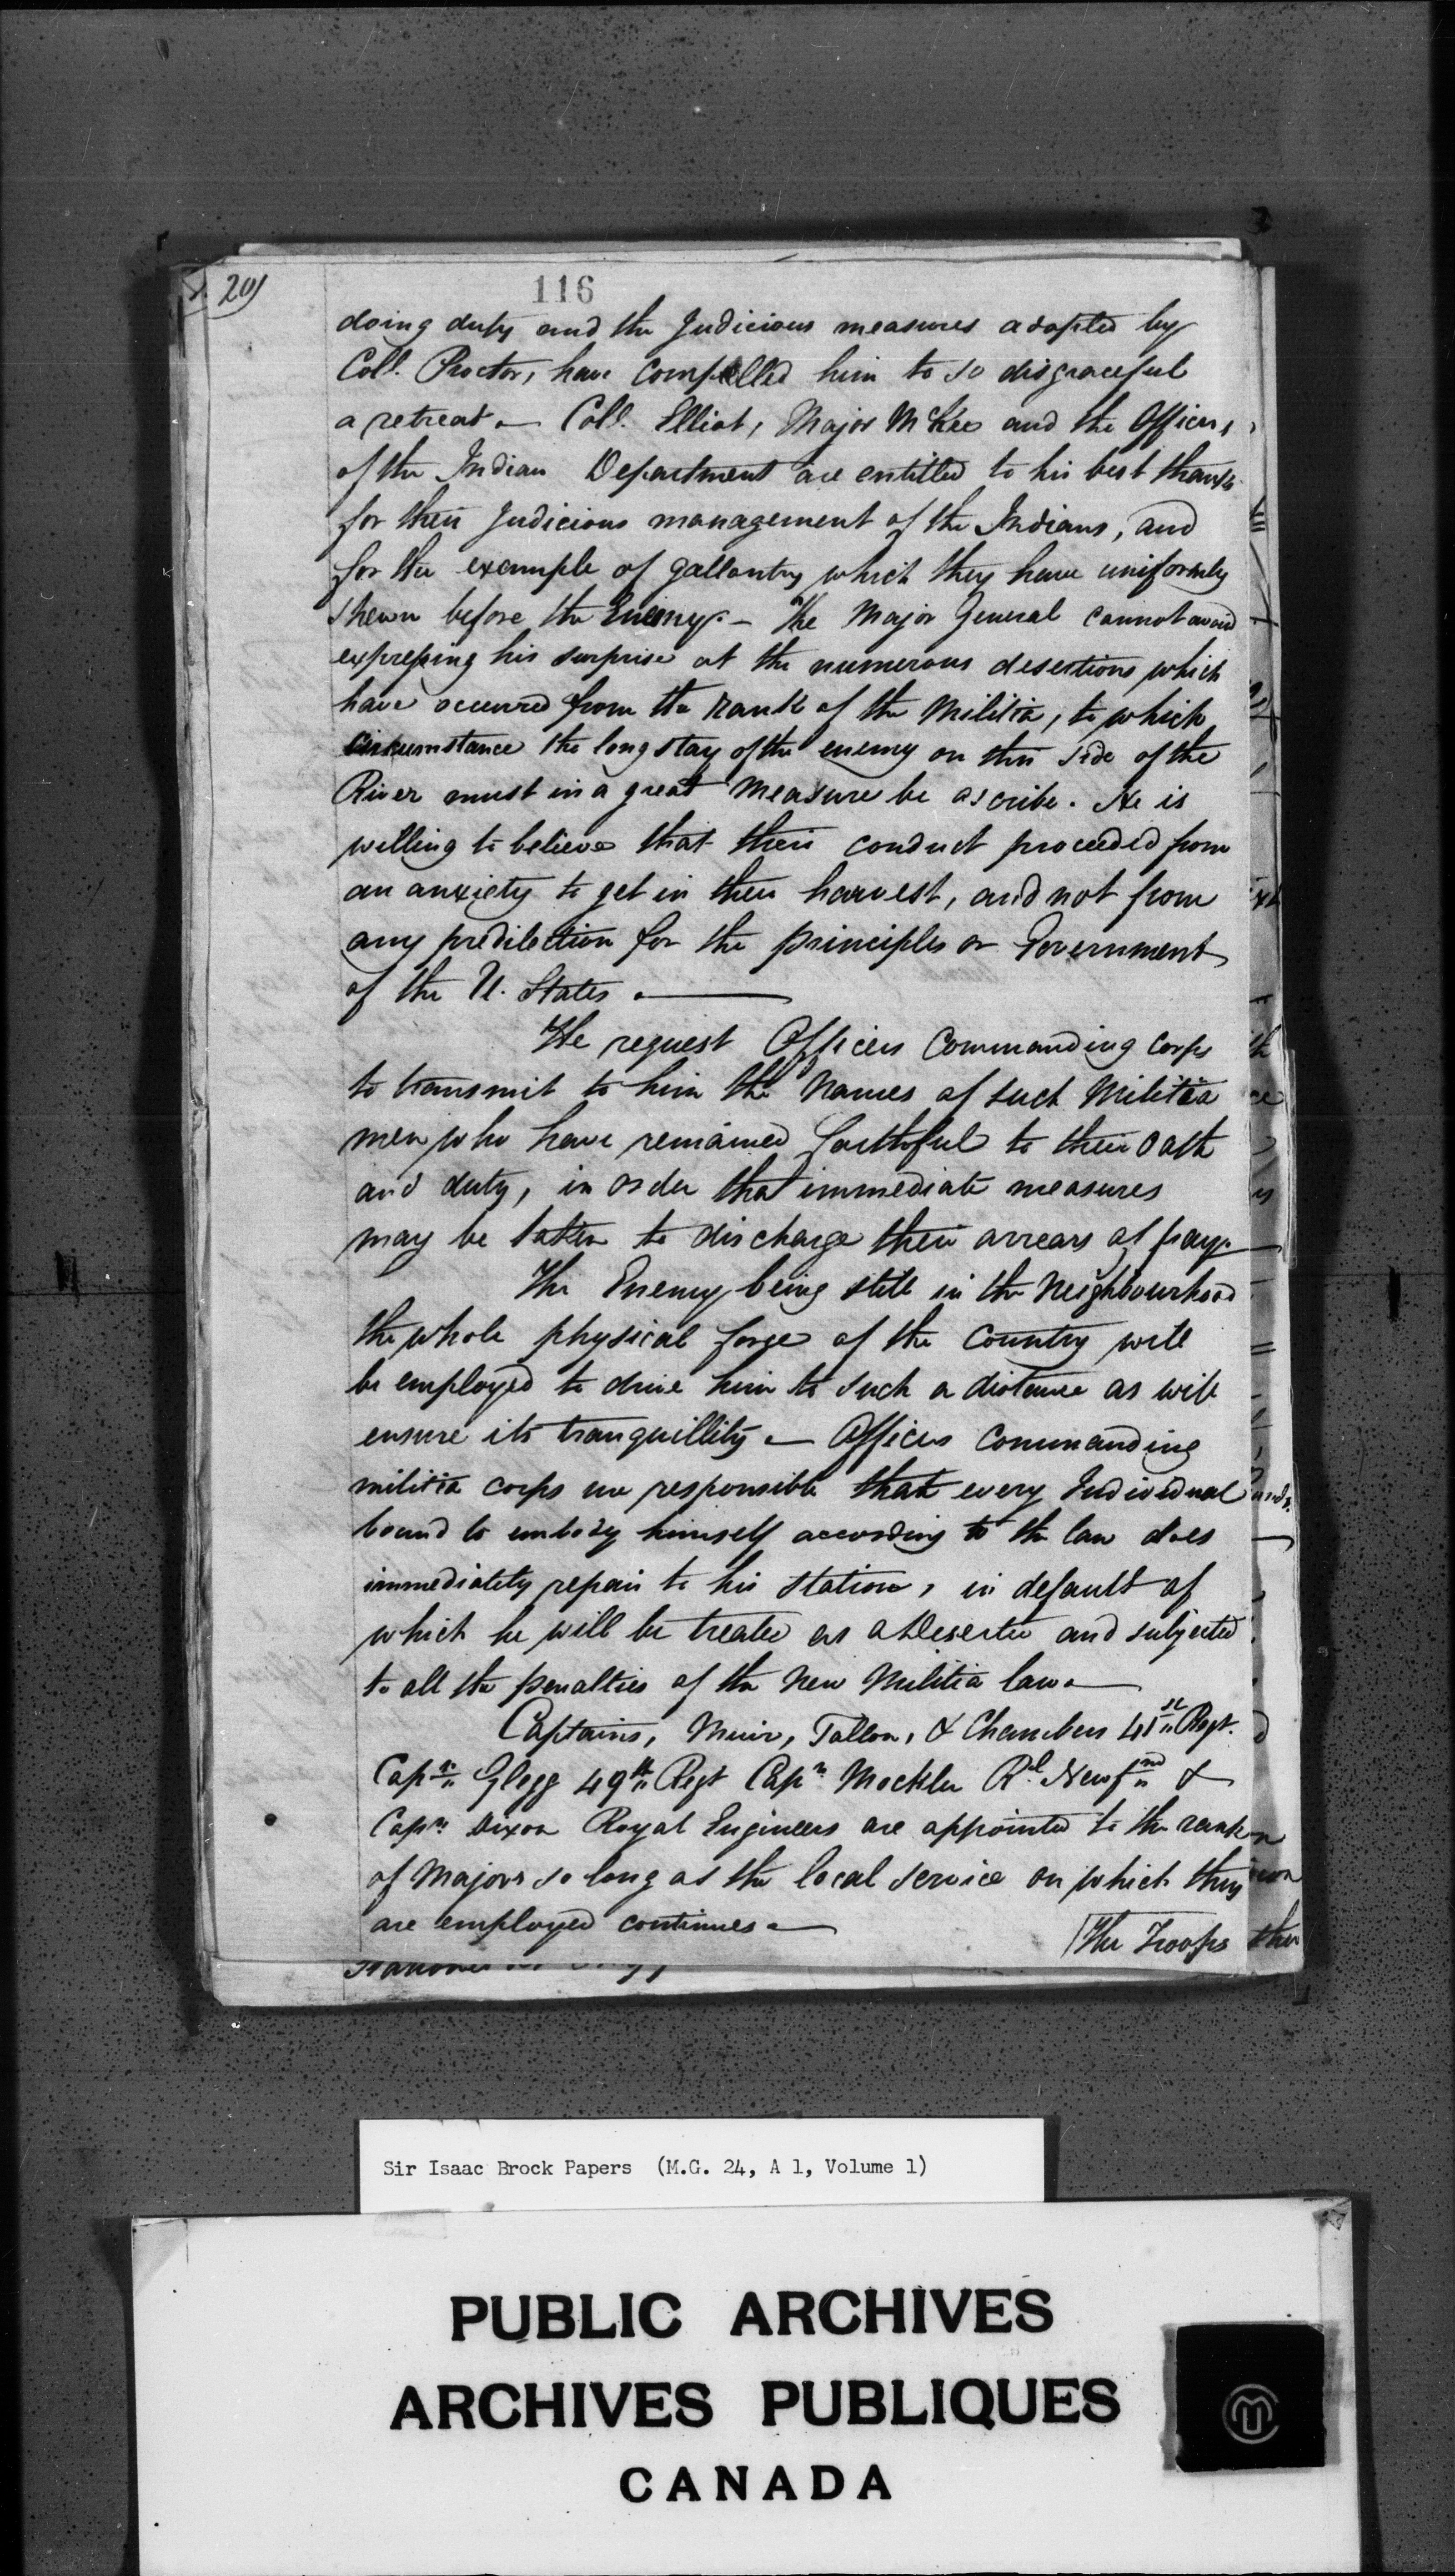 20)
116
doing duty and the Judicious measures adopted by
Coll. Proctor, have compelled him to so disgraceful
a retreat — Coll. Elliot, Major McKee and the Officers
of the Indian Department are entitled to his best thanks
for their Judicious management of the Indians, and
for the example of gallantry which they have uniformly
shewn before the Enemy. — The Major General cannot avoid
expressing his surprise at the numerous desertions which
have occurred from the rank of the Militia, to which
circumstance the long stay of the enemy on this side of the
River must in a great measure be ascribe. He is
willing to believe that their conduct proceeded from
an anxiety to get in their harvest, and not from
any predilection for the principles or Government
of the U. States. —
He request Officers Commanding Corps
to transmit to him the Names of such Militia
men who have remained faithful to their Oath
and duty, in order that immediate measures
may be taken to discharge their arrears of pay. —
The Enemy being still in the Neighbourhood
the whole physical forge of the Country will
be employed to drive him to such a distance as will
ensure its tranquillity — Officers Commanding
militia corps are responsible that every Individual
bound to embody himself according to the law does
immediately repair to his station, in default of
which he will be treated as a Deserter and subjected
to all the penalties of the New Militia law. —
Captains, Muir, Tallon, & Chambers 41st Regt.
Capn Glegg 49th Regt Capn Mockler Rl. Newfnd &
Capn Dixon Royal Engineers are appointed to the rank
of Majors so long as the local service on which they
are employed continues. —
The Troops
Sir Isaac Brock Papers (M.G. 24, A 1, Volume 1)
PUBLIC ARCHIVES
ARCHIVES PUBLIQUES
CANADA